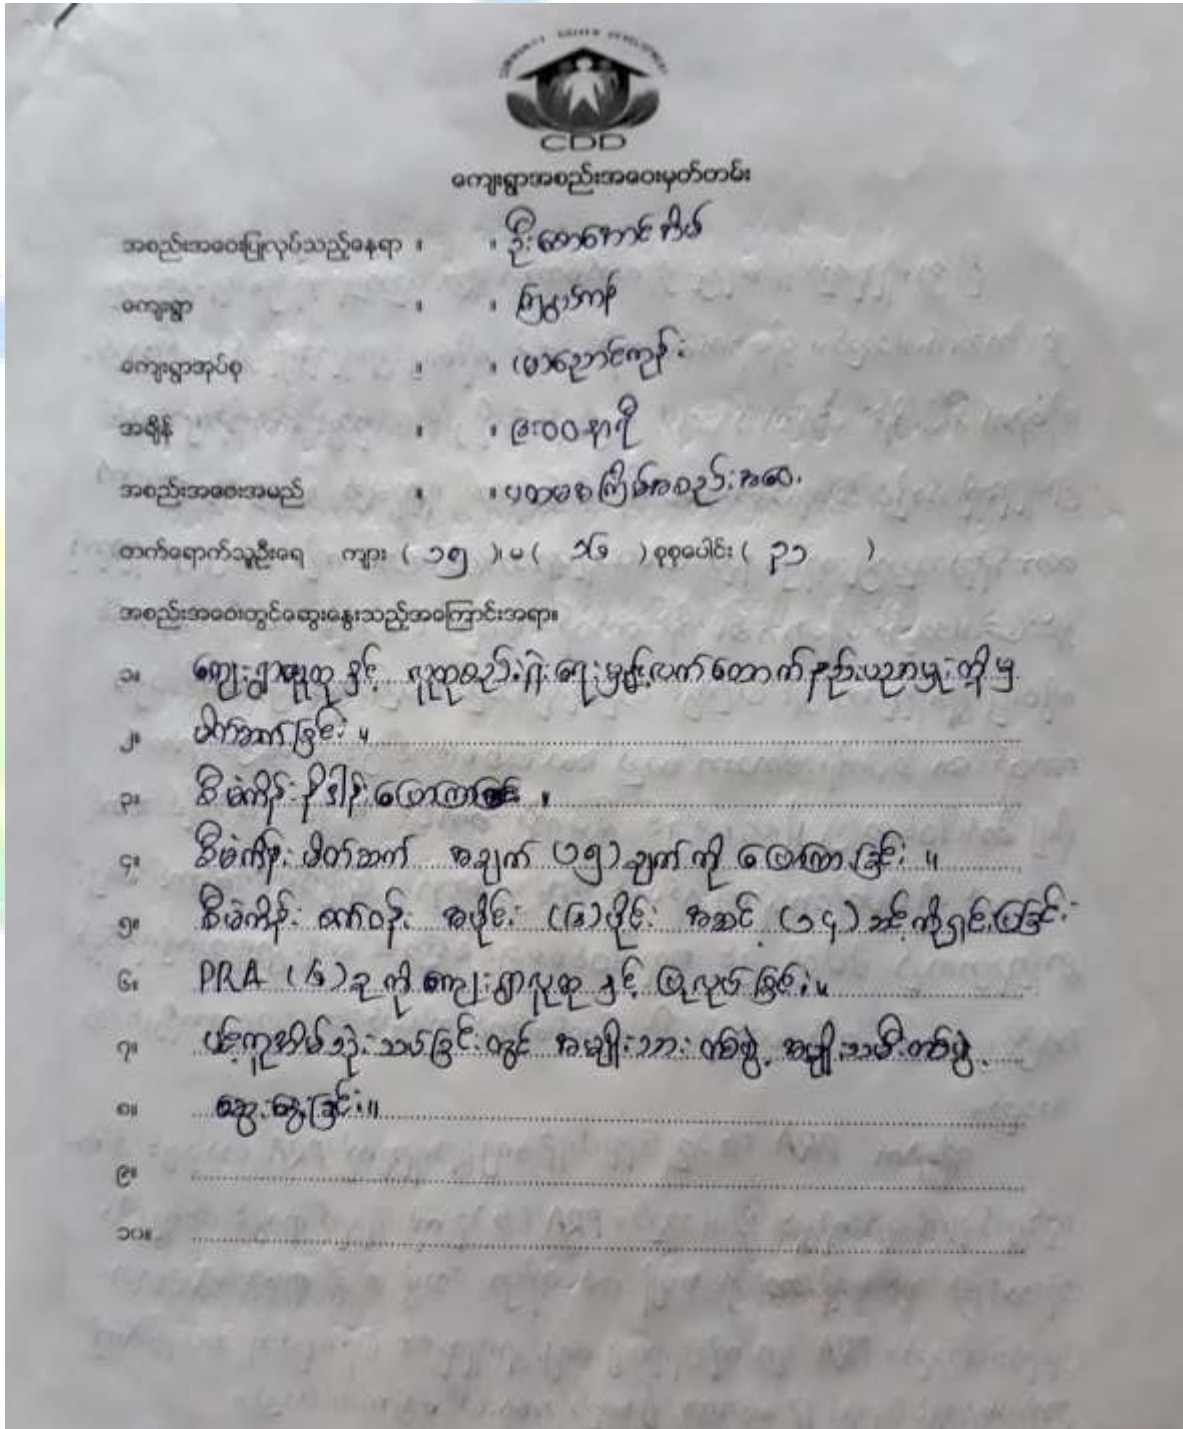 COMMUNITY DRIVEN DEVELOPMENT
CDD
ကျေးရွာအစည်းအဝေးမှတ်တမ်း
အစည်းအဝေးပြုလုပ်သည့်နေရာ ။ ။ ဦးစောအောင်အိမ်
ကျေးရွာ ။ ။
ကျေးရွာအုပ်စု ။ ။ (မ)ညောင်ကုန်း
အချိန် ။ ။ ၉:၀၀ နာရီ
အစည်းအဝေးအမည် ။ ။ ပထမအကြိမ်အစည်းအဝေး
တက်ရောက်သူဦးရေ ကျား ( ၁၅ )၊ မ ( ၁၆ ) စုစုပေါင်း ( ၃၁ )
အစည်းအဝေးတွင်ဆွေးနွေးသည့်အကြောင်းအရာ။
၁။ ကျေးရွာလူထု နှင့် လူထုစည်းရုံးရေးမှူး၊ လက်ထောက်နည်းပညာမှူးတို့မှ
၂။ မိတ်ဆက်ခြင်း ။
၃။ စီမံကိန်း နိဒါန်း ပြောကြားခြင်း ။
၄။ စီမံကိန်း မိတ်ဆက် အချက် (၁၅) ချက် ကို ပြောကြားခြင်း ။
၅။ စီမံကိန်း စက်ဝန်း အပိုင်း (၆) ပိုင်း အဆင့် (၁၄) ဆင့် ကို ရှင်းပြခြင်း
၆။ PRA (၆) ခု ကို ကျေးရွာလူထု နှင့် ပြုလုပ်ခြင်း ။
၇။ ပင့်ကူအိမ်ဒုံးသပ်ခြင်းတွင် အမျိုးသား တစ်ဖွဲ့ အမျိုးသမီးတစ်ဖွဲ့
၈။ ဆွေးနွေးခြင်း ။
၉။
၁၀။